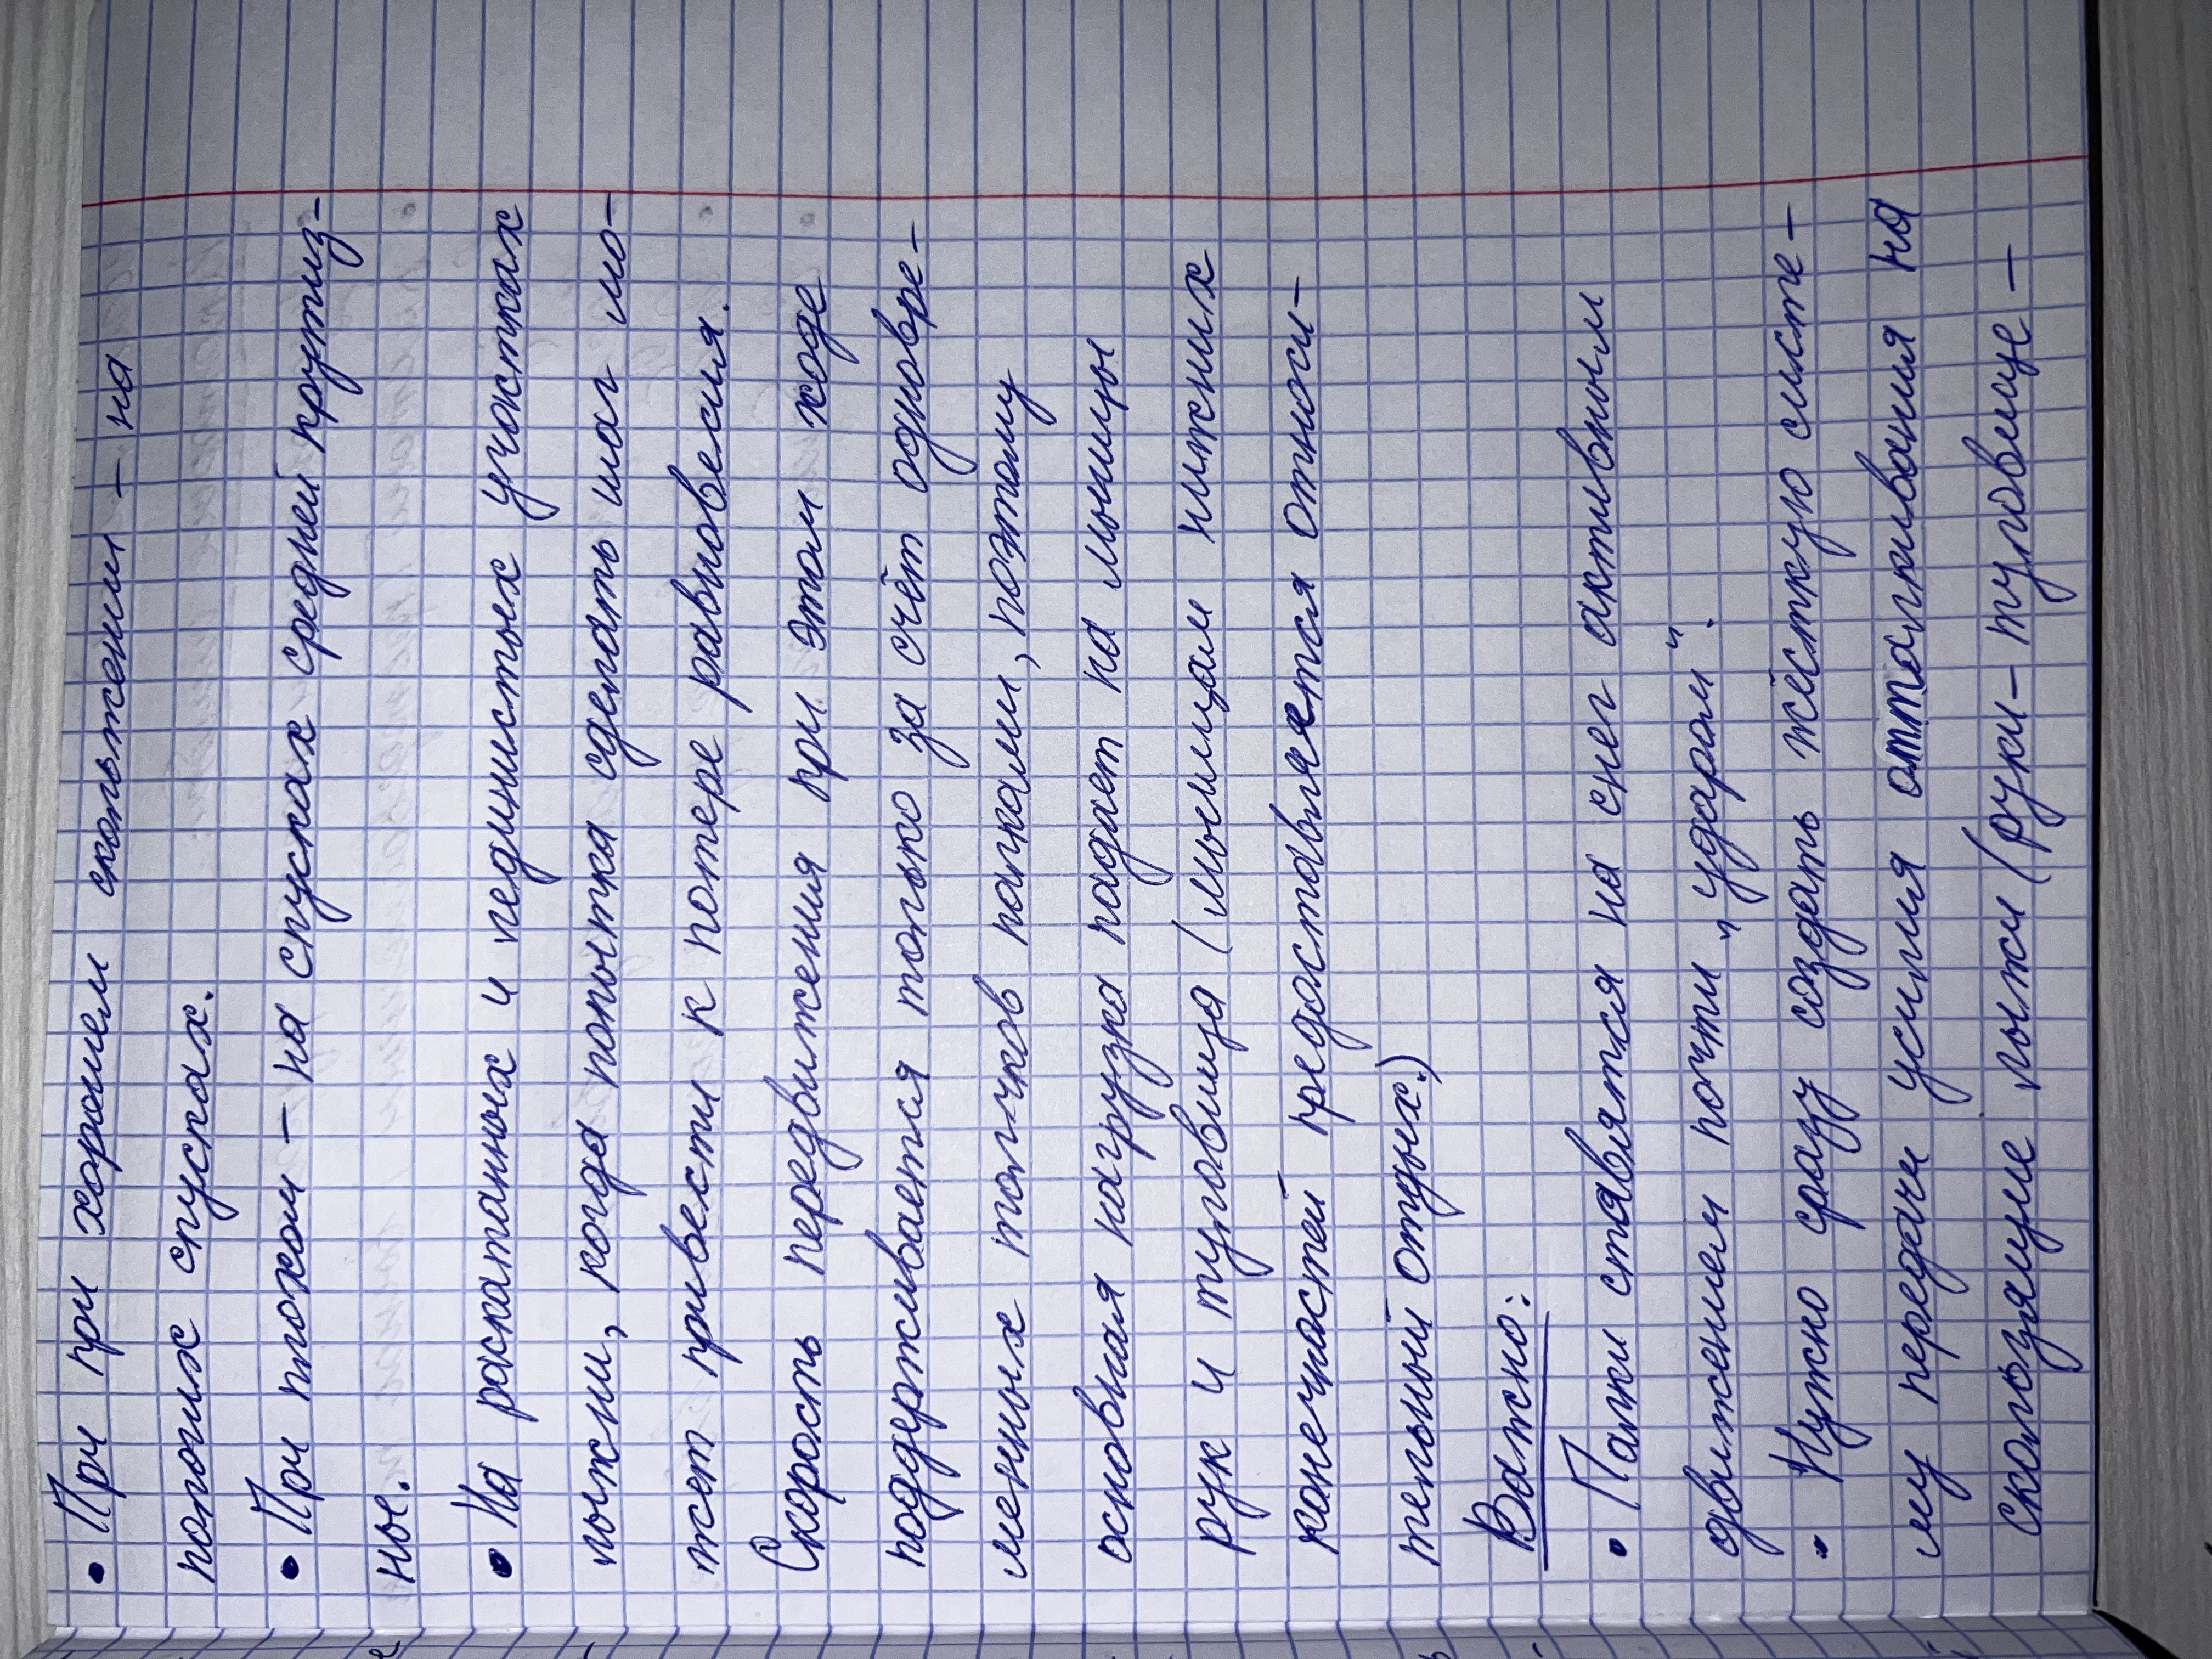 • При при хорошем скольжении – на
пологих спусках.
• При плохом – на спусках средней крутиз-
ны.
• На раскатанных и леданистых участках
лыжни, когда попытка сделать шаг мо-
жет привести к потере равновесия.
Скорость передвижения при этом ходе
поддерживается только за счёт одновре-
менных толчков палками, поэтому
основная нагрузка падает на мышцы
рук и туловища (мышцам нижних
конечностей предоставляется относи-
тельный отдых.)
Важно:
• Палки ставятся на снег активным
движением почти "ударом".
• Нужно сразу создать жёсткую систе-
му передачи усилия отталкивания на
скользящие лыжи (руки – туловище –